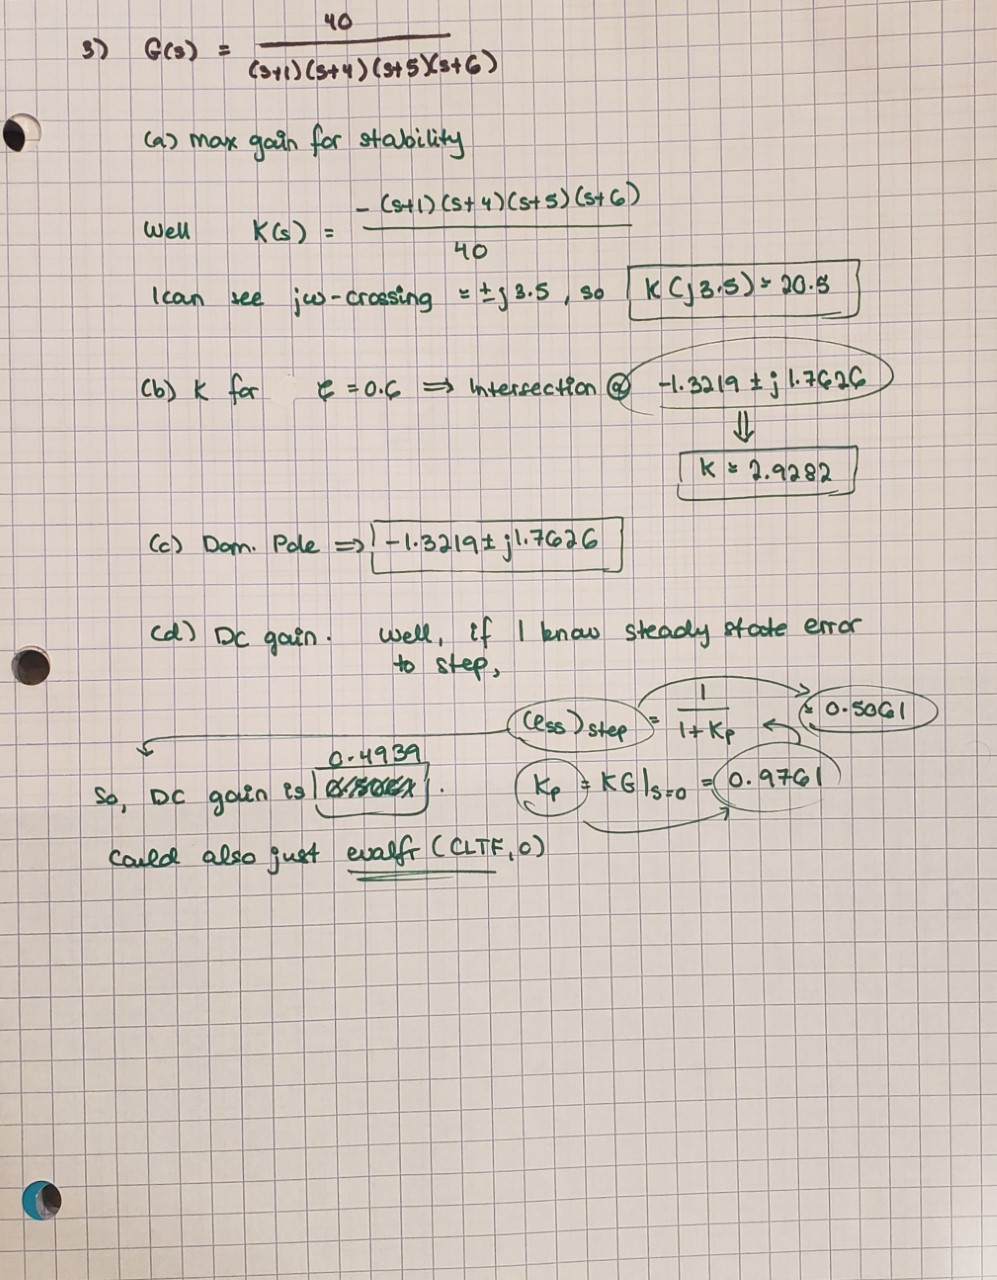 3) G(s) = 40 / (s+1)(s+4)(s+5)(s+6)
(a) max gain for stability
Well K(s) = -(s+1)(s+4)(s+5)(s+6) / 40
I can see jω-crossing = ±j3.5, so K(j3.5) ≈ 20.5
(b) K for ξ = 0.6 ⇒ Intersection @ -1.3219 ± j1.7626
⇓
K ≈ 2.9282
(c) Dom. Pole ⇒ -1.3219 ± j1.7626
(d) DC gain. well, if I know steady state error
to step,
(ess)step = 1 / 1+Kp ≈ 0.5061
0.4939
So, DC gain is .
Kp = KG|s=0 = 0.9761
Could also just evalfr (CLTF, 0)